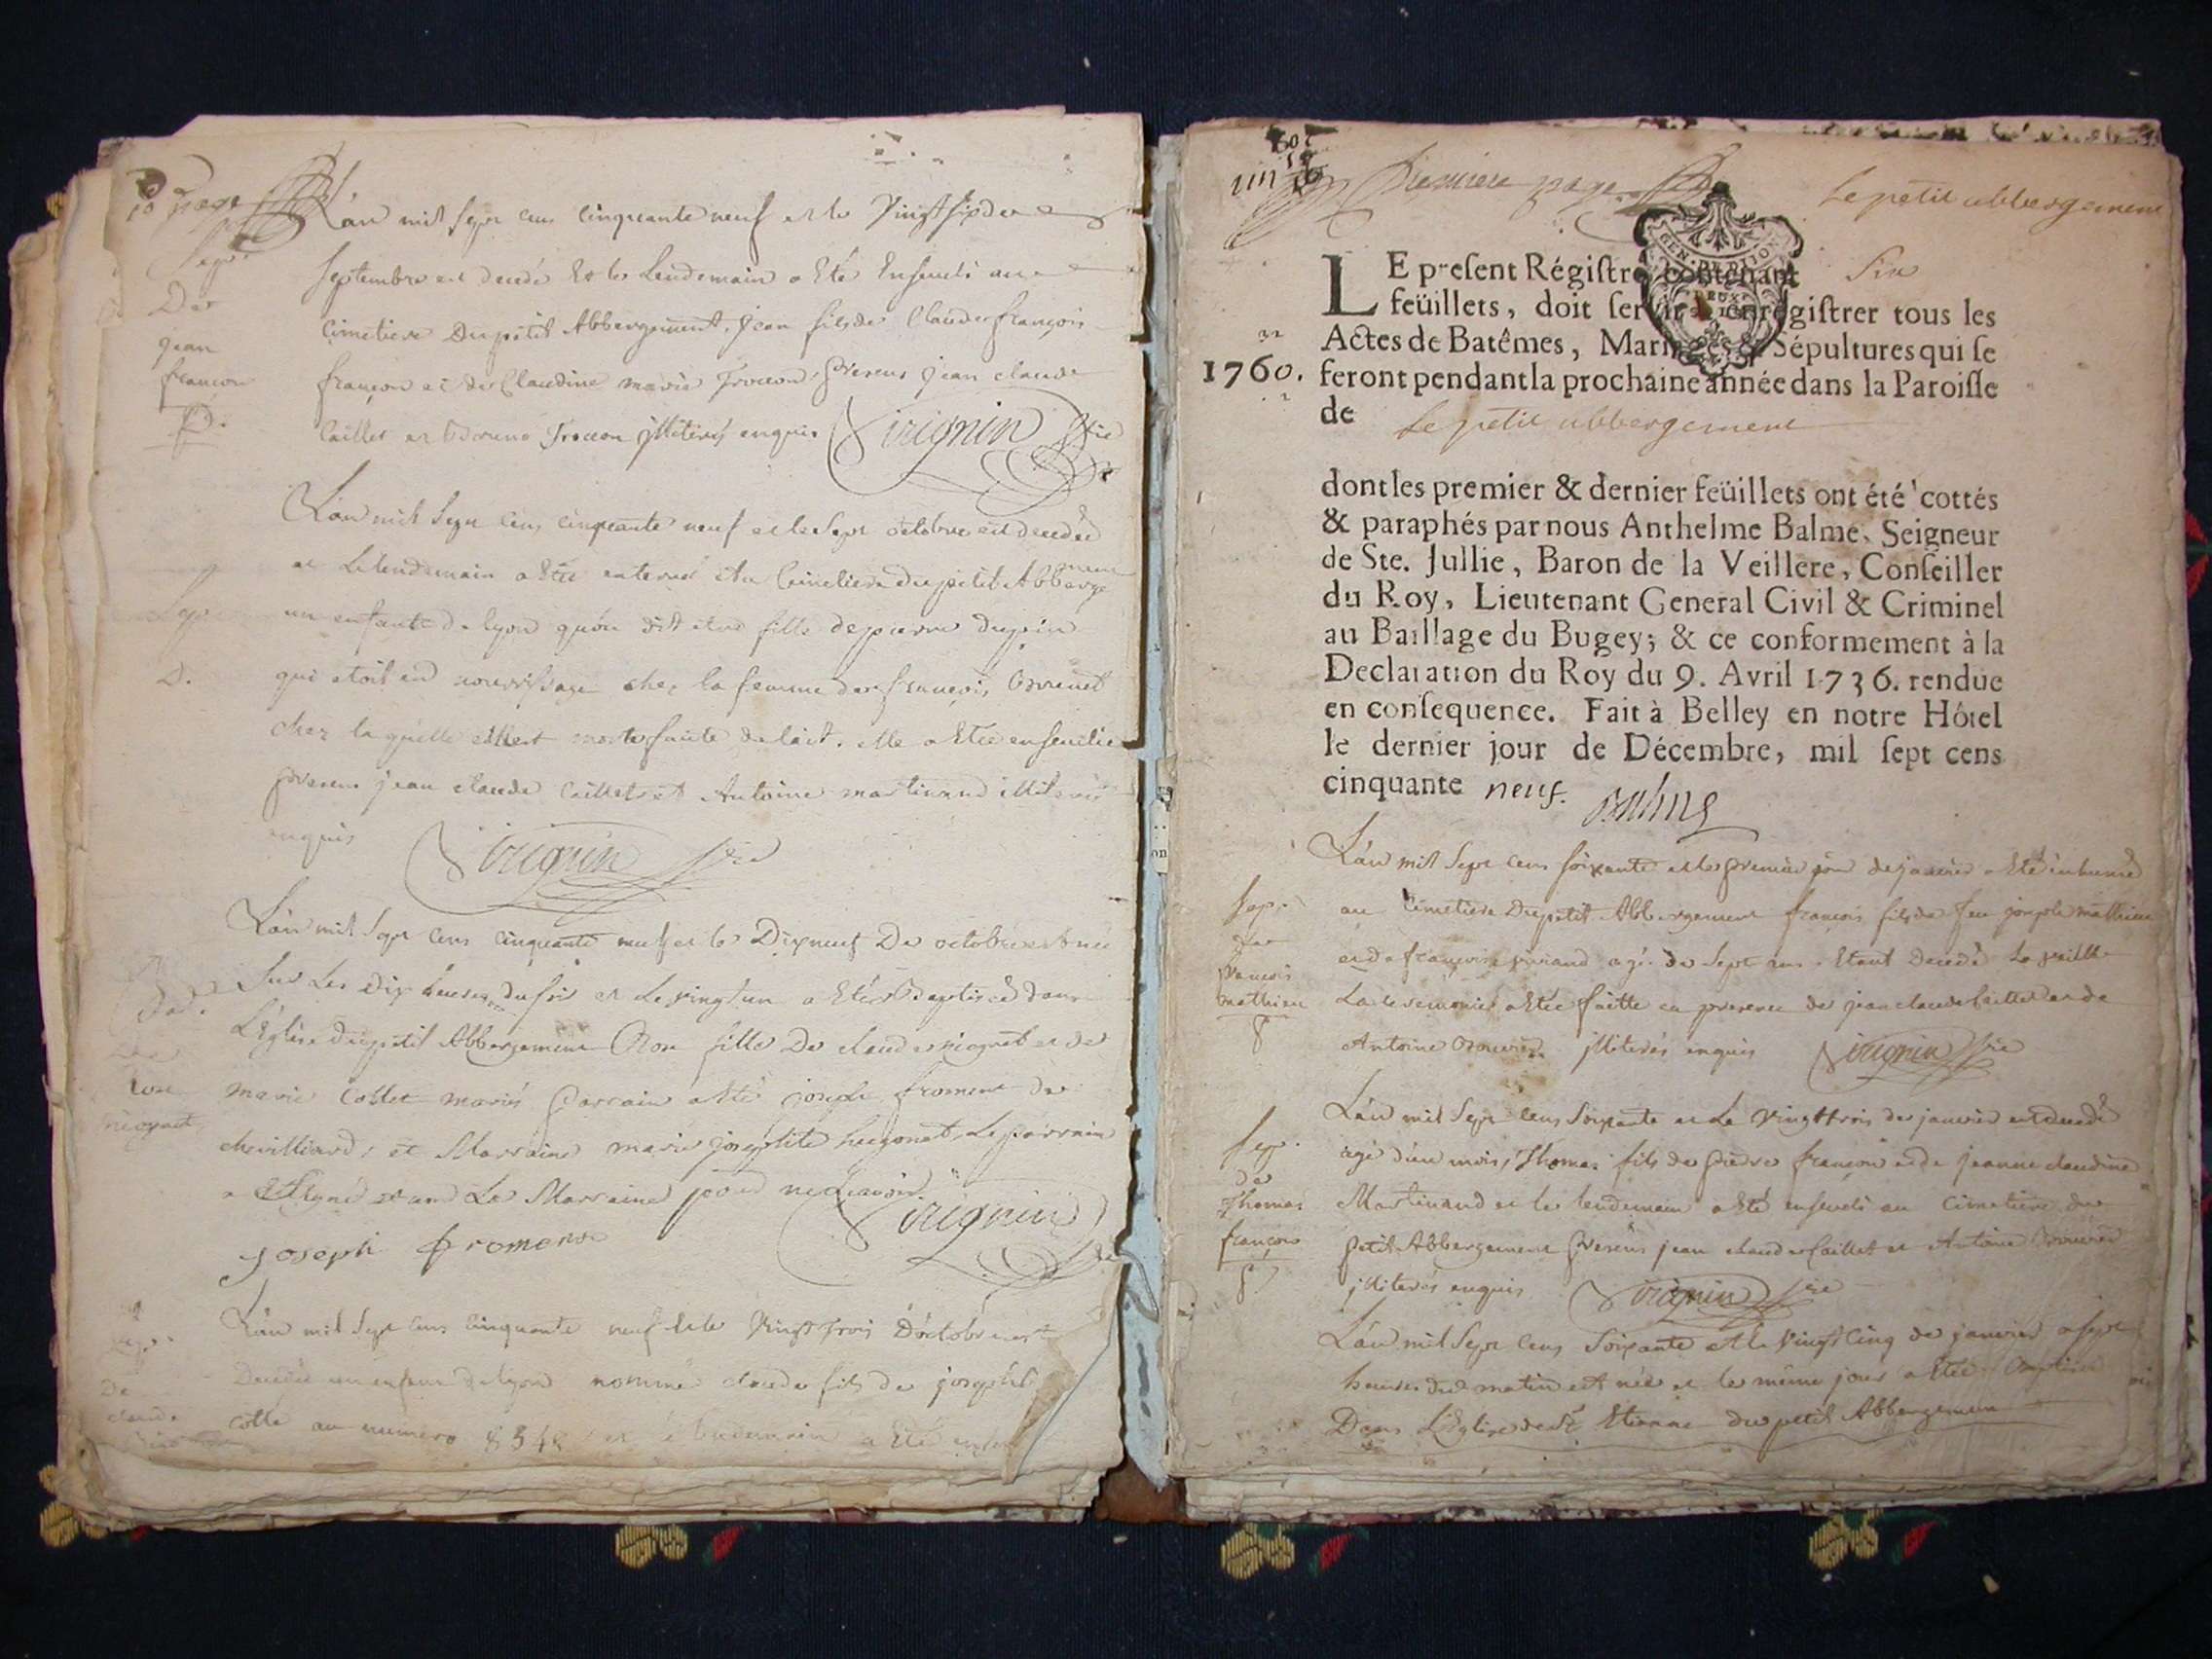 10 page
L'an mil sept cens cinquante neuf et le Vingt six de
septembre est decedé et le Lendemain a eté Enseveli au
Cimetiere du petit Abbergement, Jean fils de Claude françois
françon et de Claudine marie Trocon, presens jean claude
Caillet et Trocon illiterés enquis Virignin
Sep.
De
jean
françon
L'an mil sept cens cinquante neuf et le sept octobre est decedée
et Le lendemain a été enterré au Cimetiere du petit Abbergement
un enfant de lyon qu'on dit etre fille de pierre dupin
qui etoit en nourrissage chez la femme de françois
chez laquelle elle est morte faute de lait. elle a Eté ensevelie
presens jean claude Caillet et Antoine martinand illiterés
enquis Virignin
Sep.
L'an mil sept cens cinquante neuf et le Dix neuf De octobre est née
sur Les Dix heures du soir et Le vingt un a Eté Baptisée dans
L'Eglise du petit Abbergement fille De claude et de
marie Collet mariés Parrain a Eté joseph froment de
chevilliard, et Marraine marie josephte hugonet, Le parrain
a signé et non La Marraine pour ne sçavoir. Virignin
Joseph froment
L'an mil sept cens cinquante neuf et le Vingt Trois D'octobre est
Decedé un enfant de lyon nommé claude fils de joseph
Cotté au numero et le lendemain a Eté
De
claude
Premiere page
Le petit abbergement
LE present Régistre contenant six
feüillets, doit servir à enregistrer tous les
Actes de Batêmes, Mariages & Sépultures qui se
1760. feront pendant la prochaine année dans la Paroisse
de Le petit abbergement
dont les premier & dernier feüillets ont été cottés
& paraphés par nous Anthelme Balme, Seigneur
de Ste. Jullie, Baron de la Veillere, Conseiller
du Roy, Lieutenant General Civil & Criminel
au Baillage du Bugey; & ce conformement à la
Declaration du Roy du 9. Avril 1736. rendue
en consequence. Fait à Belley en notre Hôtel
le dernier jour de Décembre, mil sept cens
cinquante neuf. Balme
L'an mil sept cens soixante et le premier jour de janvier a Eté inhumé
au Cimetiere Du petit Abbergement françois fils de feu joseph mathieu
et de françoise agé de sept ans. Etant Decedé La veille
La ceremonie a Eté faitte en presence de jean claude Caillet et de
Antoine illiterés enquis Virignin
Sep.
De
françois
mathieu
L'an mil sept cens soixante et Le Vingt trois de janvier est decedé
agé d'un mois, Thomas fils de Pierre françon et de jeanne claudine
Martinand et le lendemain a Eté enseveli au Cimetiere du
petit Abbergement presens jean claude Caillet et Antoine
illiterés enquis Virignin
Sep.
de
Thomas
françon
L'an mil sept cens soixante et Le Vingt Cinq de janvier a sept
heures du matin est née et le même jour a Eté Baptisée
Dans L'Eglise de St Etienne du petit Abbergement